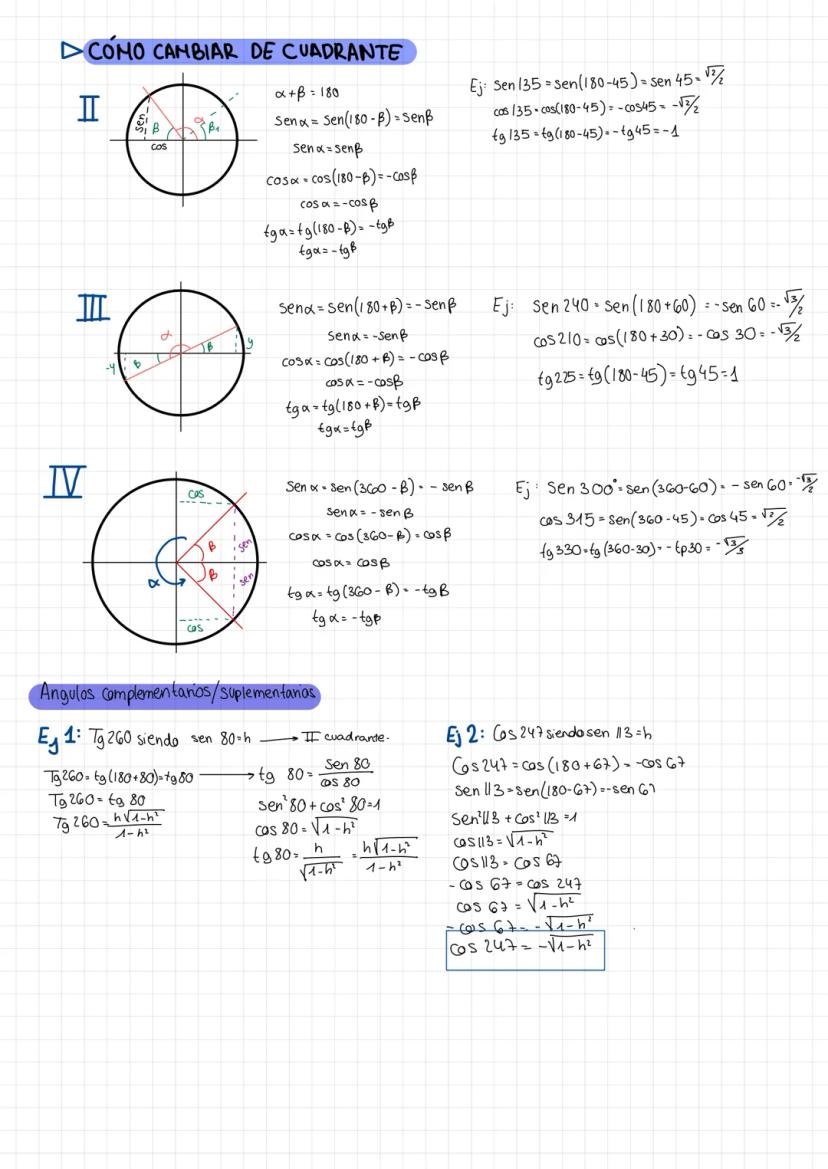 ▷ CÓMO CAMBIAR DE CUADRANTE
II
sen
β
α
β₁
cos
α+β = 180
senα = Sen(180-β) = senβ
senα = senβ
cosα = cos(180-β) = -cosβ
cosα = -cosβ
tgα = tg(180-β) = -tgβ
tgα = -tgβ
Ej: Sen 135 = sen(180-45) = sen 45 = √2/2
cos 135 = cos(180-45) = -cos45 = -√2/2
tg 135 = tg(180-45) = -tg45 = -1
III
α
β
y
-y
β
senα = sen(180+β) = -senβ
senα = -senβ
cosα = cos(180+β) = -cosβ
cosα = -cosβ
tgα = tg(180+β) = tgβ
tgα = tgβ
Ej: sen 240 = sen(180+60) = -sen 60 = -√3/2
cos 210 = cos(180+30) = -cos 30 = -√3/2
tg225 = tg(180-45) = tg45 = 1
IV
cos
β
sen
β
sen
α
cos
Senα = sen(360-β) = -senβ
senα = -senβ
cosα = cos(360-β) = cosβ
cosα = cosβ
tgα = tg(360-β) = -tgβ
tgα = -tgβ
Ej: Sen 300° = sen(360-60) = -sen 60 = -√3/2
cos 315 = sen(360-45) = cos 45 = √2/2
tg 330 = tg(360-30) = -tp30 = -√3/3
Angulos complementarios/suplementarios
Ej 1: Tg 260 siendo sen 80=h → III cuadrante.
Tg260 = tg(180+80) = tg80 → tg 80 = sen 80/cos 80
Tg260 = tg 80
Tg 260 = h√1-h²/1-h²
sen²80 + cos²80 = 1
cos 80 = √1-h²
tg80 = h/√1-h² = h√1-h²/1-h²
Ej 2: Cos 247 siendo sen 113=h
Cos 247 = cos(180+67) = -cos 67
sen 113 = sen(180-67) = -sen 67
Sen²113 + cos²113 = 1
cos113 = √1-h²
cos 113 = cos 67
-cos 67 = cos 247
cos 67 = √1-h²
-cos 67 = -√1-h²
cos 247 = -√1-h²